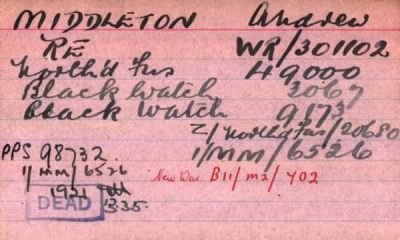 MIDDLETON Andrew
RE WR/301102
North'd Fus 49000
Black Watch 3067
Black Watch 9173
Z/North'd Fus/20680
PPS 98732. 1/MM/6526
11/MM/6526 New War B11/M2/402
1921
DEAD 3.35.